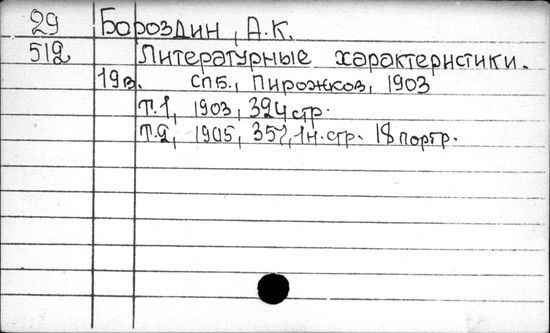 29 Бороздин, А.К.
512 Литературные характеристики.
19в. Спб., Пирожков, 1903
т.1, 1903, 394 стр.
т.2, 1905, 357, 1н.стр. 18 портр.